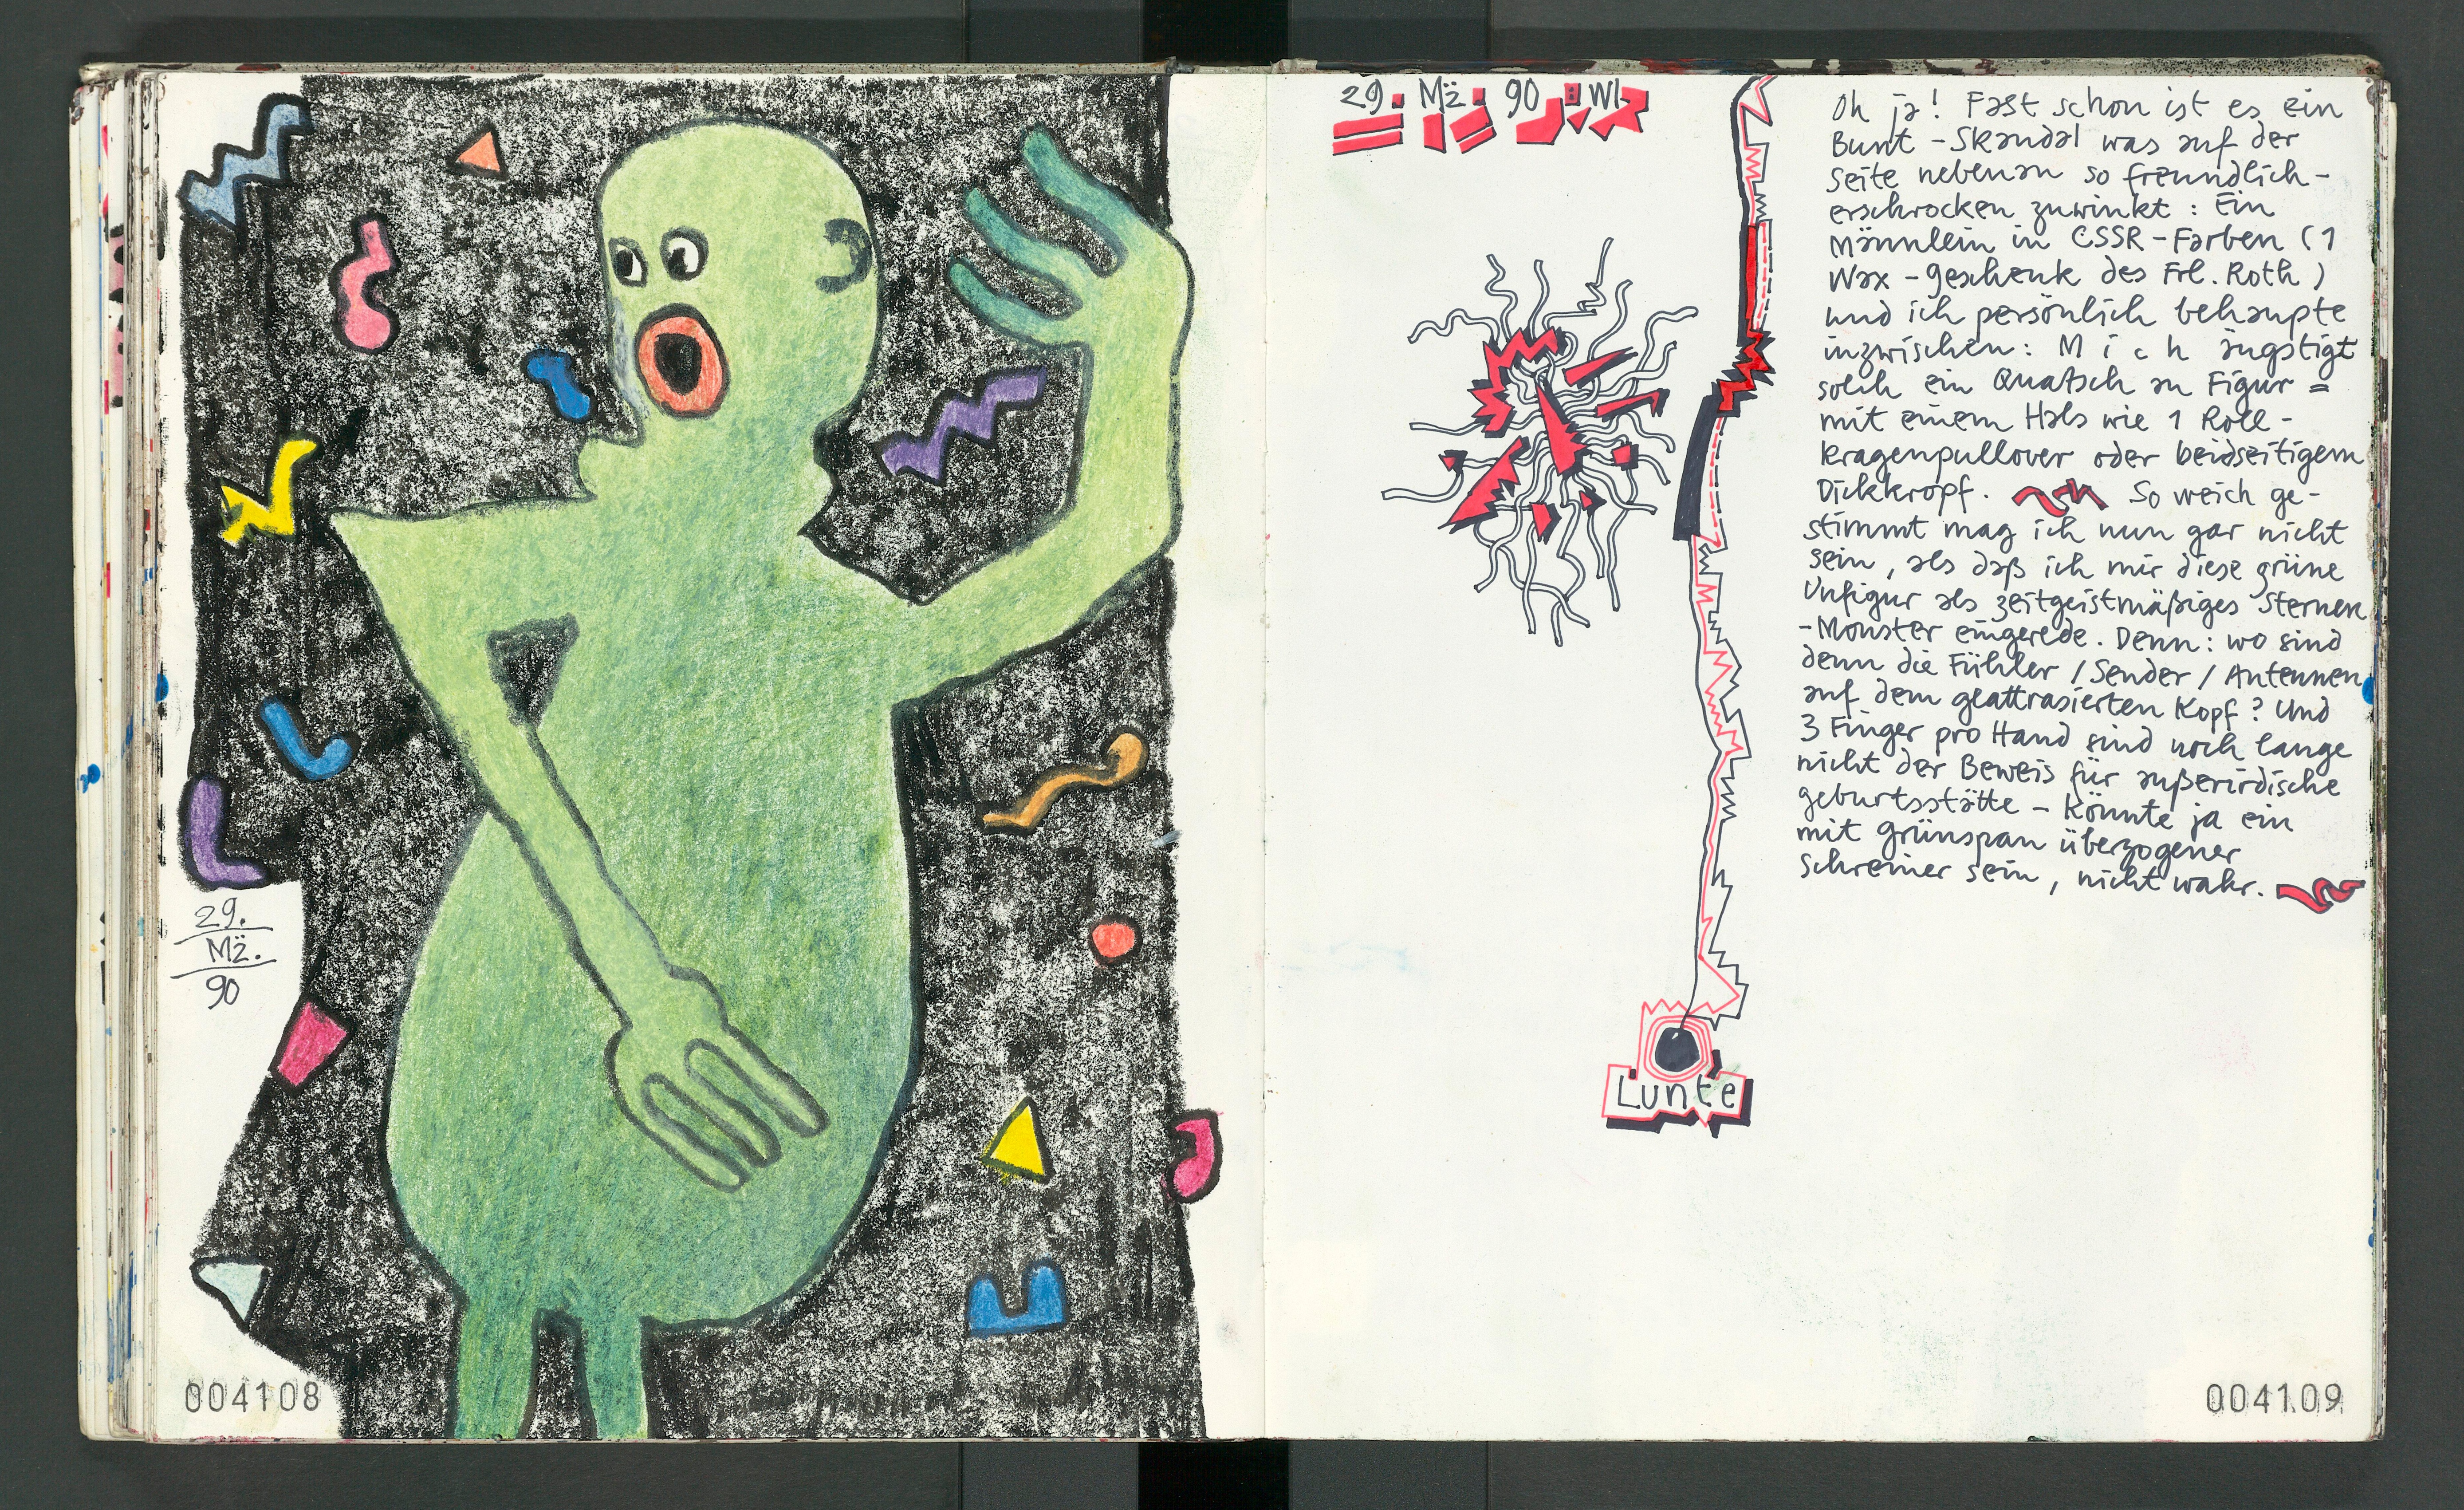 29.
Mz̈.
90
004108
29. Mz̈. 90 : WI
Oh ja! Fast schon ist es ein
Bunt-Skandal was auf der
Seite nebenan so freundlich-
erschrocken zuwinkt: Ein
Männlein in CSSR-Farben (1
Wax-Geschenk des Frl. Roth)
und ich persönlich behaupte
inzwischen: Mich ängstigt
solch ein Quatsch an Figur =
mit einem Hals wie 1 Roll-
kragenpullover oder beidseitigem
Dickkropf. So weich ge-
stimmt mag ich nun gar nicht
sein, als daß ich mir diese grüne
Unfigur als zeitgeistmäßiges Sternen
-Monster eingerede. Denn: wo sind
denn die Fühler / Sender / Antennen
auf dem glattrasierten Kopf? Und
3 Finger pro Hand sind noch lange
nicht der Beweis für außerirdische
Geburtsstätte - Könnte ja ein
mit Grünspan überzogener
Schreiner sein, nicht wahr.
Lunte
004109